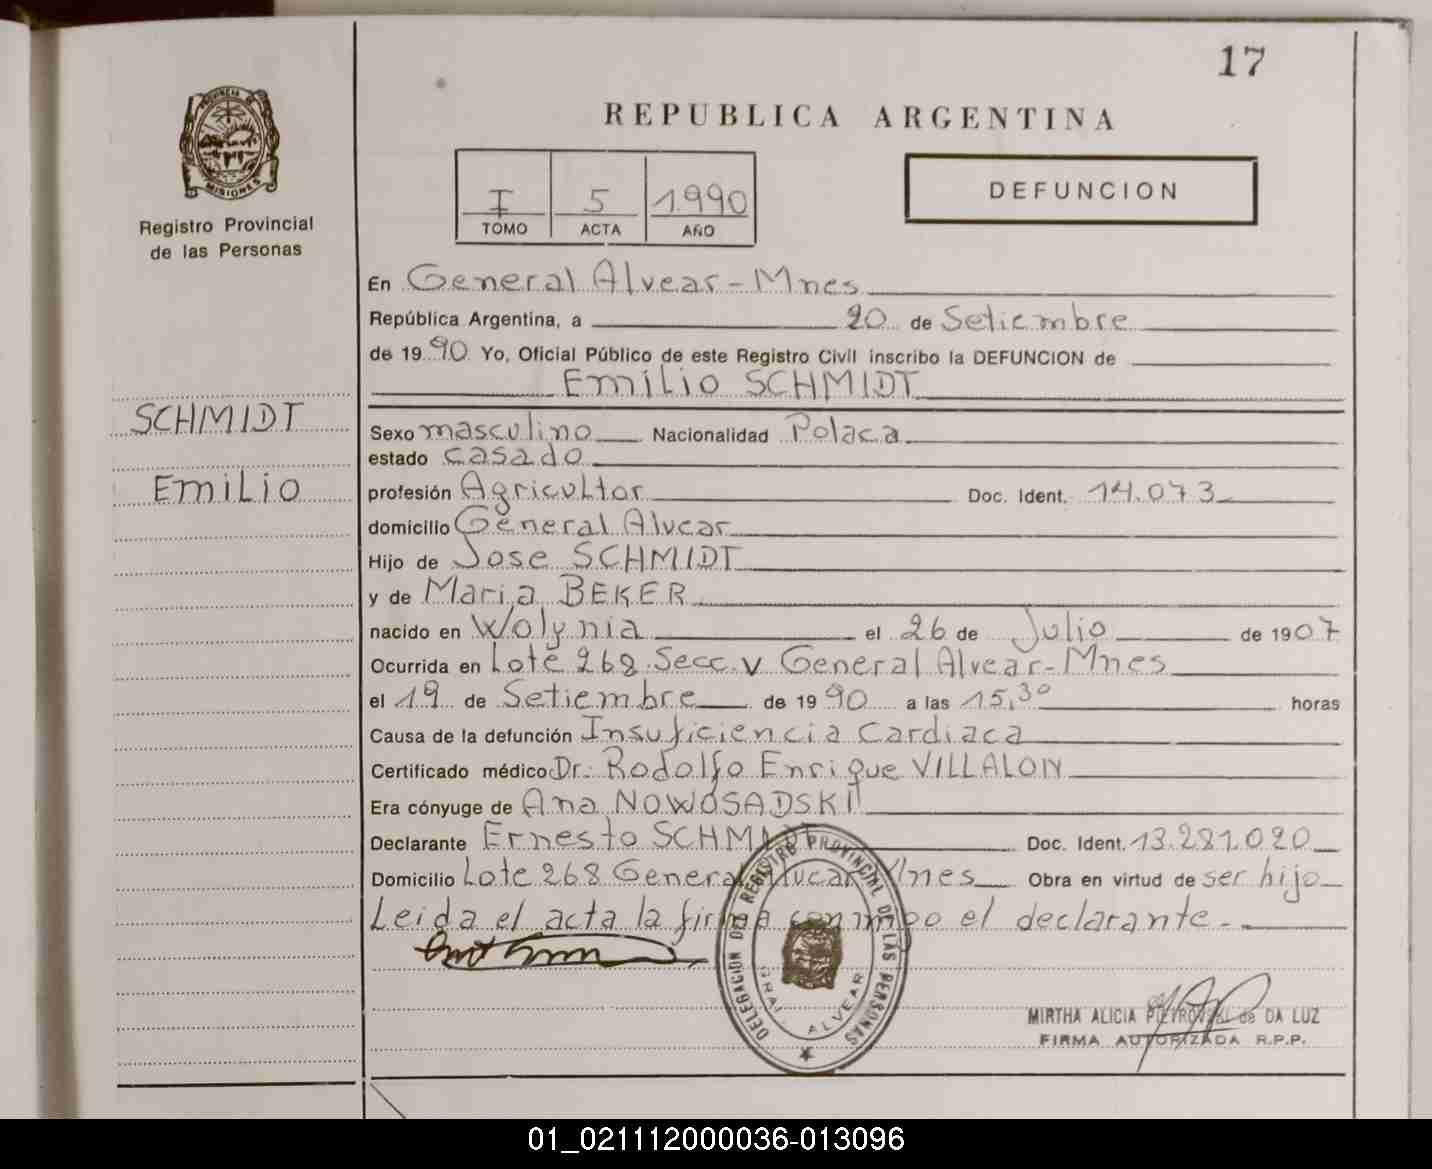 17
PROVINCIA DE
MISIONES
Registro Provincial
de las Personas
REPUBLICA ARGENTINA
I 5 1990
TOMO ACTA AÑO
DEFUNCION
En General Alvear-Mnes
República Argentina, a 20 de Setiembre
de 1990 Yo, Oficial Público de este Registro Civil inscribo la DEFUNCION de
Emilio SCHMIDT
SCHMIDT
Emilio
Sexo masculino Nacionalidad Polaca
estado casado
profesión Agricultor Doc. Ident. 14.073
domicilio General Alvear
Hijo de Jose SCHMIDT
y de Maria BEKER
nacido en Wolynia el 26 de Julio de 1907
Ocurrida en Lote 268 Secc. V General Alvear-Mnes
el 19 de Setiembre de 1990 a las 15,30 horas
Causa de la defunción Insuficiencia Cardiaca
Certificado médico Dr. Rodolfo Enrique VILLALON
Era cónyuge de Ana NOWOSADSKI
Declarante Ernesto SCHMIDT Doc. Ident. 13.281.020
Domicilio Lote 268 General Alvear Mnes Obra en virtud de ser hijo
Leida el acta la firma conmigo el declarante.-
DELEGACION DEL REGISTRO PROVINCIAL DE LAS PERSONAS
GRAL. ALVEAR
MIRTHA ALICIA PIETROVSKI de DA LUZ
FIRMA AUTORIZADA R.P.P.
01_021112000036-013096